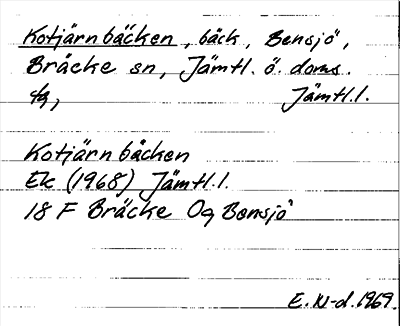 Kotjärnbäcken, bäck, Bensjö,
Bräcke sn, Jämtl. ö. doms.
tg, Jämtl.l.
Kotjärnbäcken
Ek (1968) Jämtl.l.
18 F Bräcke Og Bensjö
E. N-d. 1969.